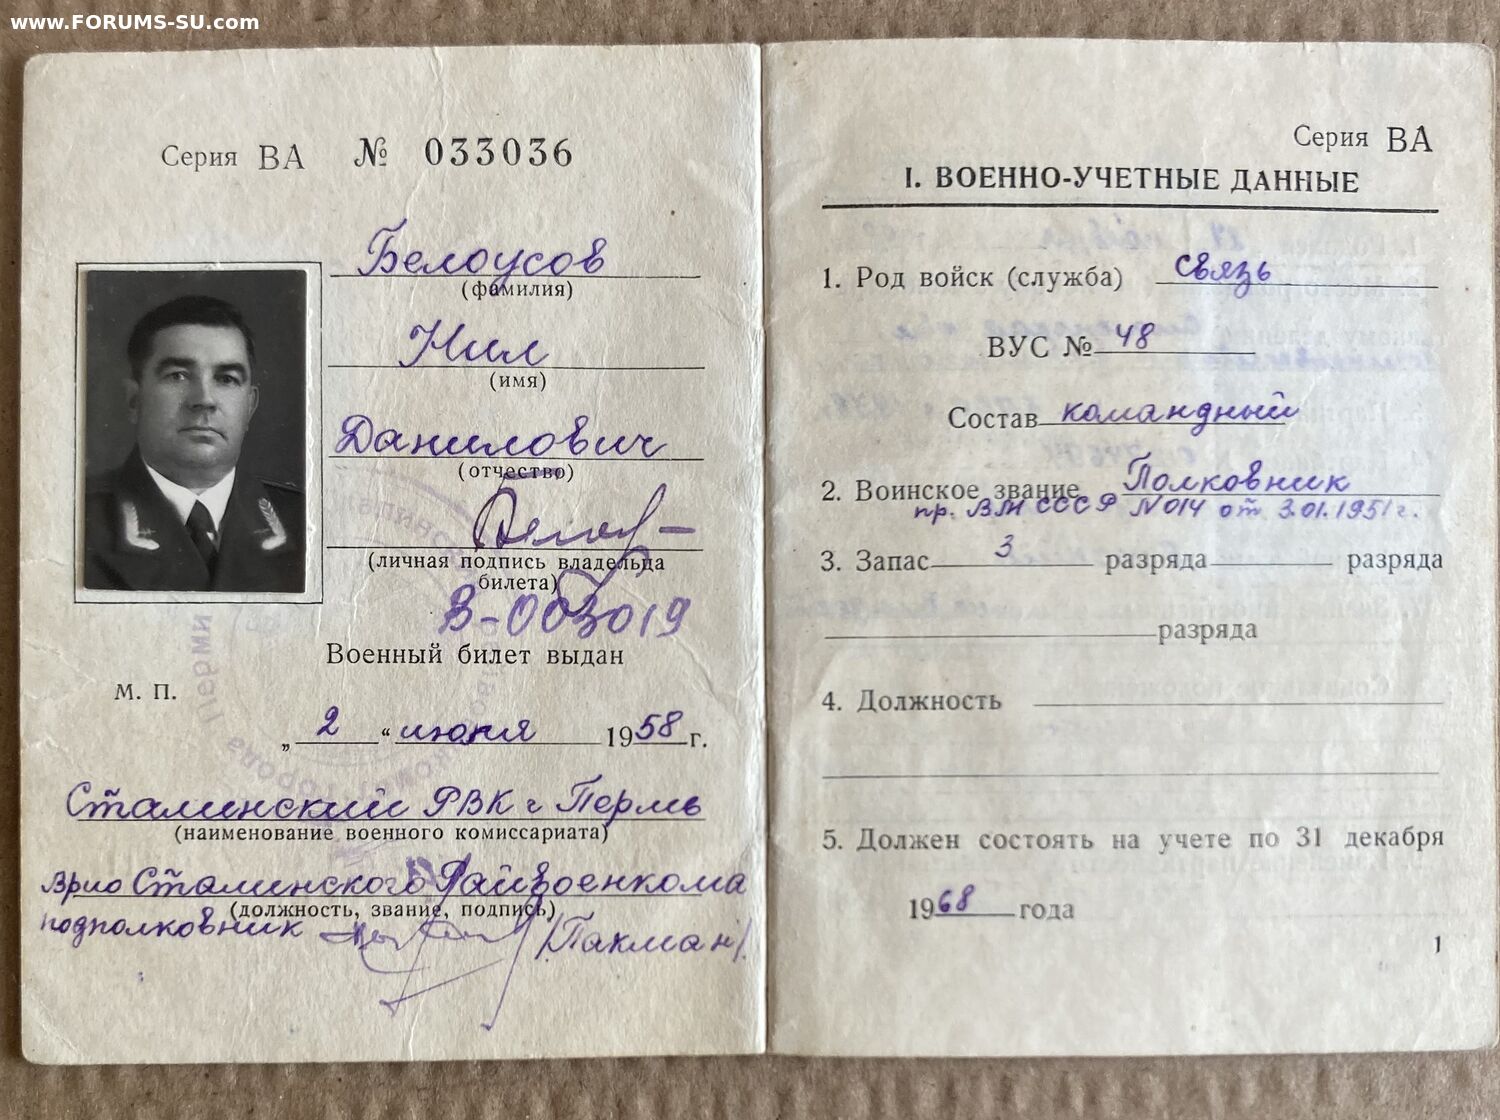 www.FORUMS-SU.com
Серия ВА № 033036
Белоусов
(фамилия)
Нил
(имя)
Данилович
(отчество)
(личная подпись владельца
билета)
В-003019
Военный билет выдан
М. П.
„ 2 “ июня 1958 г.
Сталинский РВК г Пермь
(наименование военного комиссариата)
Врио Сталинского Райвоенкома
(должность, звание, подпись)
подполковник /Пакман/
Серия ВА
I. ВОЕННО-УЧЕТНЫЕ ДАННЫЕ
1. Род войск (служба) связь
ВУС № 48
Состав командный
2. Воинское звание Полковник
пр. ВМ СССР N 014 от 3.01.1951 г.
3. Запас 3 разряда разряда
разряда
4. Должность
5. Должен состоять на учете по 31 декабря
1968 года
1